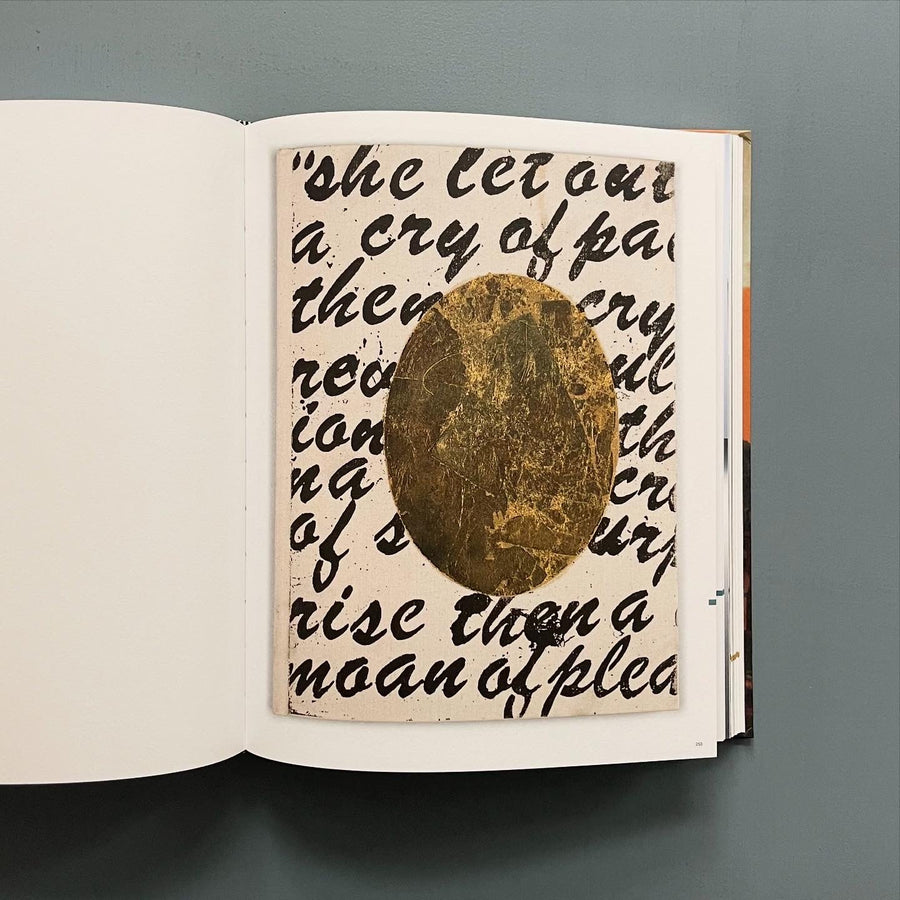 "she let out
a cry of pa
then cry
rea ul
ion th
na cr
of s urp
rise then a
moan of plea